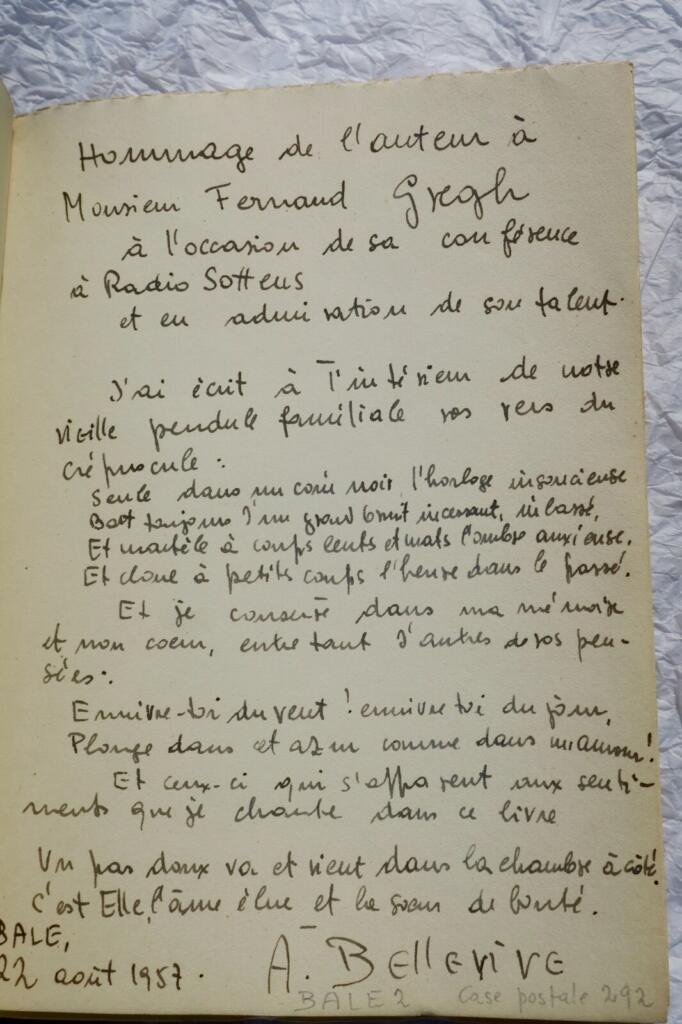 Hommage de l'auteur à
Monsieur Fernand Gregh
à l'occasion de sa conférence
à Radio Sottens
et en admiration de son talent.
J'ai écrit à l'intérieur de notre
vieille pendule familiale vos vers du
crépuscule :
Seule dans un coin noir, l'horloge insoucieuse
Bat toujours d'un grand bruit incessant, inlassé,
Et martèle à coups lents et mats l'ombre anxieuse,
Et cloue à petits coups l'heure dans le passé.
Et je conserve dans ma mémoire
et mon coeur, entre tant d'autres de vos pen-
sées :
Ennivre-toi du vent ! ennivre toi du jour,
Plonge dans cet azur comme dans un amour !
Et ceux-ci qui s'apparent aux senti-
ments que je chante dans ce livre
Un pas doux va et vient dans la chambre à côté.
C'est Elle, l'âme élue et la soeur de bonté.
BALE,
22 août 1957.
A. BELLEVIVE
BALE 2 Case postale 292